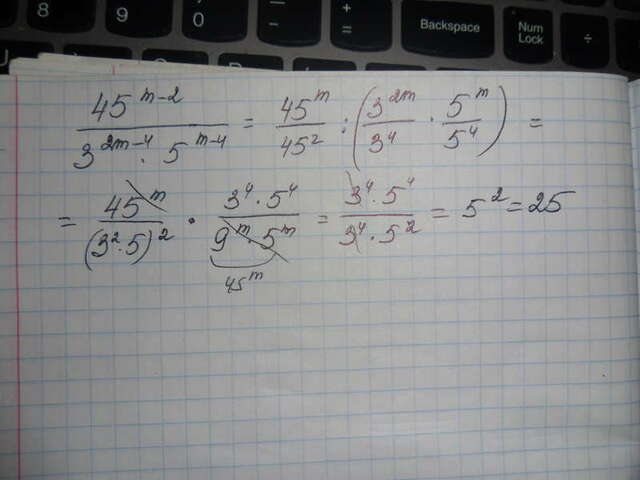 8 9 0 ) Backspace Num Lock ÷
45^(m-2) / (3^(2m-4) · 5^(m-4)) = 45^m / 45^2 : (3^(2m) / 3^4 · 5^m / 5^4) =
= 45^m / (3^2 · 5)^2 · 3^4 · 5^4 / (9^m · 5^m) = 3^4 · 5^4 / (3^4 · 5^2) = 5^2 = 25
45^m